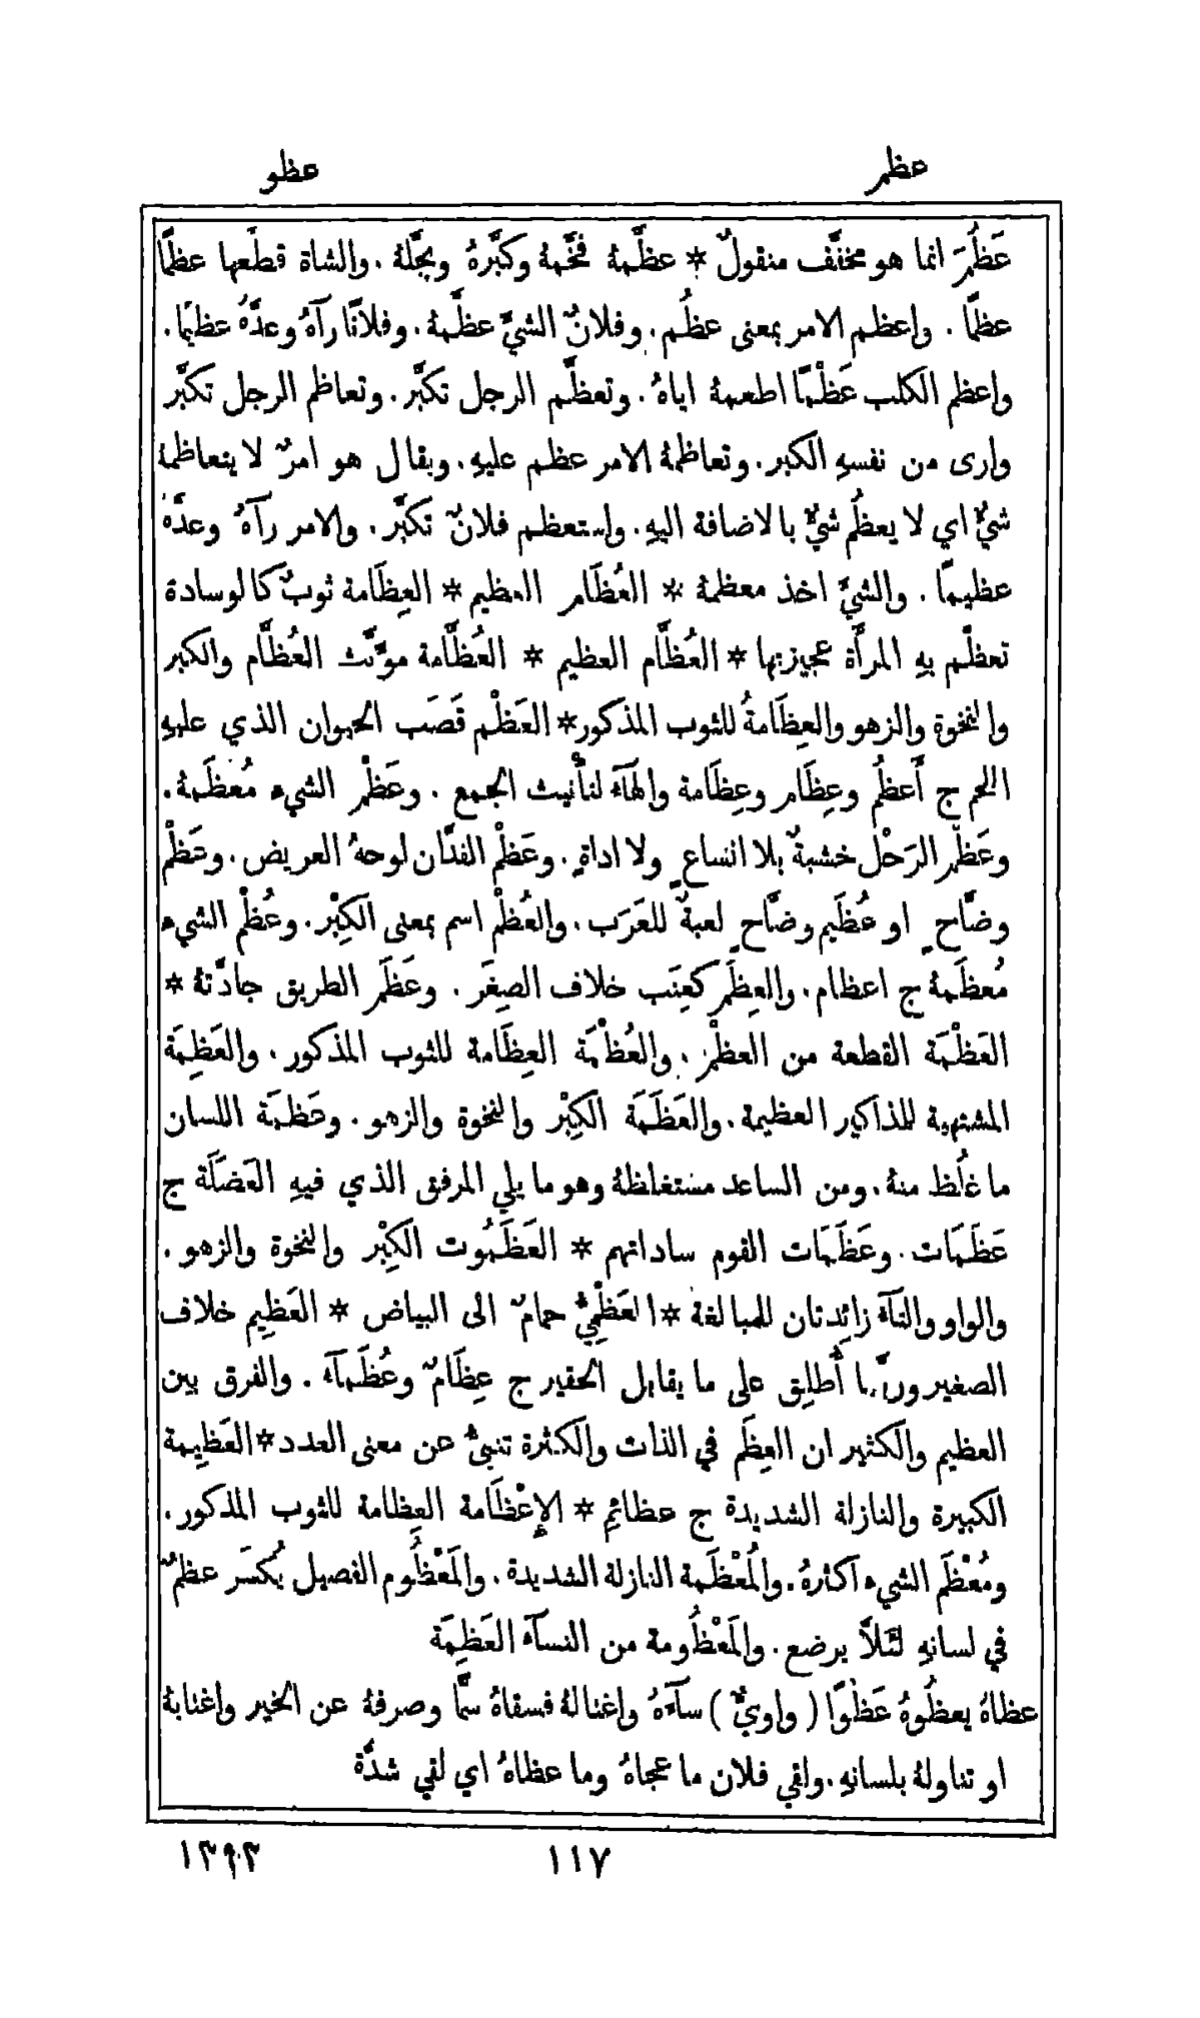 عظم
عظو
عَظُمَ انما هو مخفَّف منقولٌ * عظَّمهُ فخَّمهُ وكبَّرهُ وبجَّلهُ. والشاة قطَّعها عظمًا
عظمًا. واعظم الامر بمعنى عظُم. وفلانٌ الشيَّ عظَّمهُ. وفلانًا رآهُ وعدَّهُ عظيمًا.
واعظم الكلب عَظْمًا اطعمهُ اياهُ. وتعظَّم الرجل تكبَّر. وتعاظم الرجل تكبَّر
وارى من نفسهِ الكبر. وتعاظمهُ الامر عظم عليهِ. ويقال هو امرٌ لا يتعاظمهُ
شيٌّ اي لا يعظُم شيٌّ بالاضافة اليهِ. واستعظم فلانٌ تكبَّر. والامر رآهُ وعدَّهُ
عظيمًا. والشيَّ اخذ معظمهُ * العُظَام العظيم * العِظَامة ثوبٌ كالوسادة
تعظّم بهِ المرأَة عجيزتها * العُظَّام العظيم * العُظَّامة مؤَنَّث العُظَّام والكبر
والنخوة والزهو والعِظَامةُ للثوب المذكور * العَظْم قَصَب الحيوان الذي عليهِ
اللحم ج أَعظُم وعِظَام وعِظَامة والهآءُ لتأْنيث الجمع. وعَظْم الشيء مُعظَمهُ.
وعَظْم الرَحْل خشبةٌ بلا انساعٍ ولا اداةٍ. وعَظْم الفدَّان لوحهُ العريض. وعَظْم
وضَّاحٍ او عُظَيم وضَّاحٍ لعبةٌ للعَرَب. والعُظْم اسم بمعنى الكِبْر. وعُظْم الشيء
مُعظَمهُ ج اعظام. والعِظَم كعِنَب خلاف الصِغَر. وعَظَم الطريق جادَّتهُ *
العَظْمَة القطعة من العظْم. والعُظْمَة العِظَامة للثوب المذكور. والعَظِمَة
المشتهية للمذاكير العظيمة. والعَظَمَة الكِبْر والنخوة والزهو. وعَظَمَة اللسان
ما غلُظ منهُ. ومن الساعد مستغلظهُ وهو ما يلي المرفق الذي فيهِ العَضَلَة ج
عَظَمَات. وعَظَمَات القوم ساداتهم * العَظَمُوت الكِبْر والنخوة والزهو.
والواو والتآء زائدتان للمبالغة * العَظْمِيُّ حمامٌ الى البياض * العَظِيم خلاف
الصغير وربَّما أُطلِق على ما يقابل الحقير ج عِظَامٌ وعُظَمآء. والفرق بين
العظيم والكثير ان العِظَم في الذات والكثرة تنبئُ عن معنى العدد * العَظِيمة
الكبيرة والنازلة الشديدة ج عظائِم * الإِعْظَامة العِظامة للثوب المذكور.
ومُعْظَم الشيء اكثرهُ. والمُعْظَمة النازلة الشديدة. والمَعْظُوم الفصيل يُكسَر عظمٌ
في لسانهِ لئلاَّ يرضع. والمَعْظُومة من النسآء العَظِمَة
عظاهُ يعظُوهُ عَظْوًا (واويٌّ) سآءَهُ واغتالهُ فسقاهُ سمًّا وصرفهُ عن الخير واغتابهُ
او تناولهُ بلسانهِ. ولقي فلان ما عجاهُ وما عظاهُ اي لقي شدَّة
١١٧
١٣٩٣